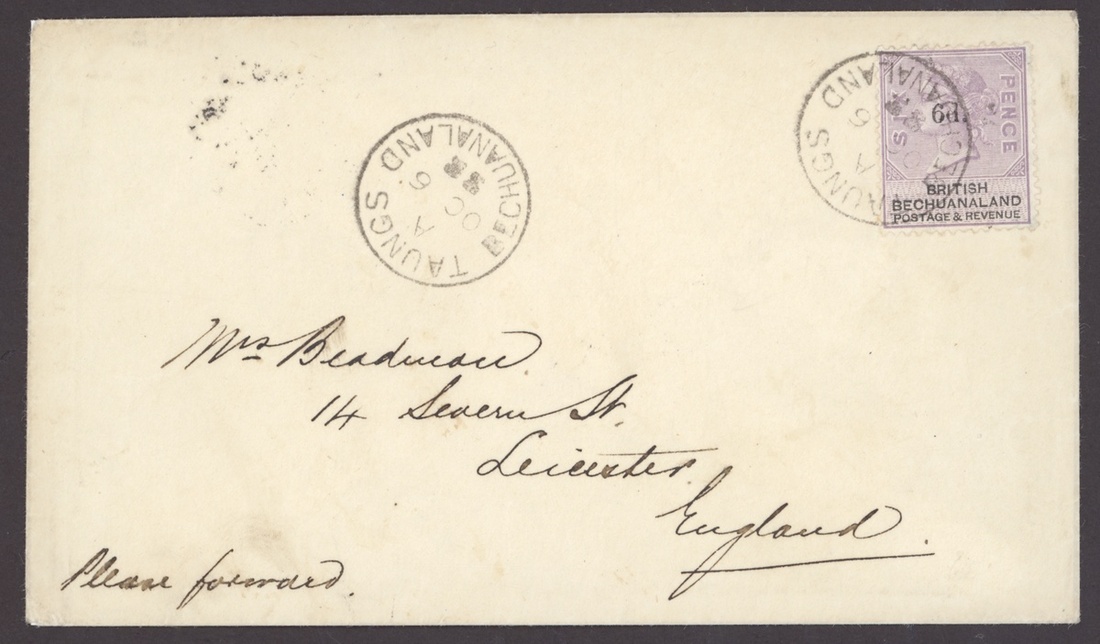 TAUNGS
BECHUANALAND
A
OC 6
88
TAUNGS
BECHUANALAND
A
OC 6
PENCE
6d.
BRITISH
BECHUANALAND
POSTAGE & REVENUE
Mrs Beadman.
14 Severn St.
Leicester.
England.
Please forward.